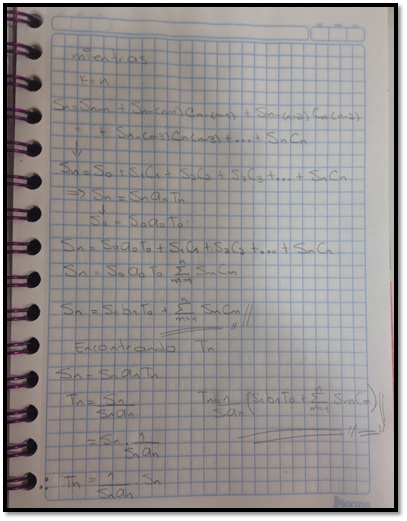 mientras
k=n
Sn = Sn-n + Sn-(n-1) Cn-(n-1) + Sn-(n-2) Cn-(n-2)
+ Sn-(n-3) Cn-(n-3) + ... + SnCn
↓
Sn = S0 + S1C1 + S2C2 + S3C3 + ... + SnCn
⇒ Sn = SnanTn
↓
S0 = S0a0T0.
Sn = S0a0T0 + S1C1 + S2C2 + ... + SnCn
Sn = S0a0T0 ∑ n m=1 SmCm
Sn = S1b1T0 + ∑ n m=1 SmCm //
Encontrando Tn
Sn = SnanTn
Tn = Sn / Snan
= Sn · 1 / Snan
∴ Tn = 1 / Snan · Sn
Tn = 1 / Snan (S1b1T0 + ∑ n m=1 SmCm) //
Norma